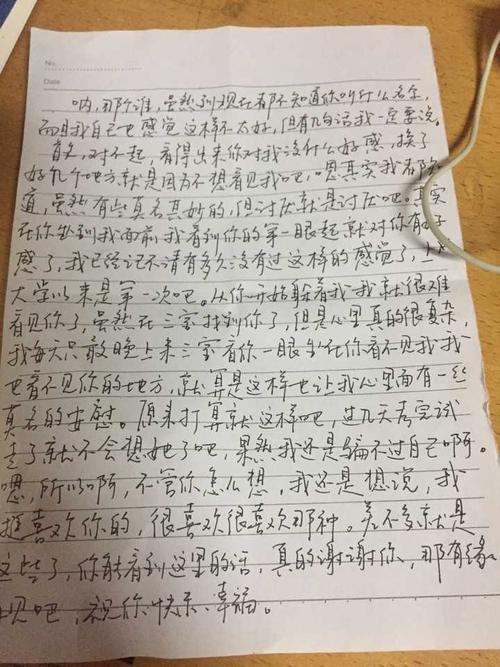 No.
Date
呐，那个谁，虽然到现在都不知道你叫什么名字，
而且我自己也感觉这样不太好，但有几句话我一定要说。
首先，对不起，看得出来你对我没什么好感，换了
好几个地方就是因为不想看见我吧，嗯其实我都知
道，虽然有些莫名其妙的，但讨厌就是讨厌吧。其实
在你坐到我面前，我看到你的第一眼起就对你有好
感了，我已经记不清有多久没有过这样的感觉了，上
大学以来是第一次吧。从你一开始躲着我我就很难
看见你了，虽然在三室找到你了，但是心里真的很复杂，
我每天只敢晚上来三室看你一眼坐在你看不见我我
也看不见你的地方，就算是这样也让我心里面有一丝
莫名的安慰。原来打算就这样吧，过几天考完试
走了就不会想她了吧，果然我还是骗不过自己啊。
嗯，所以啊，不管你怎么想，我还是想说，我
挺喜欢你的，很喜欢很喜欢那种。差不多就是
这些了，你能看到这里的话，真的谢谢你，那有缘
见吧，祝你快乐、幸福。